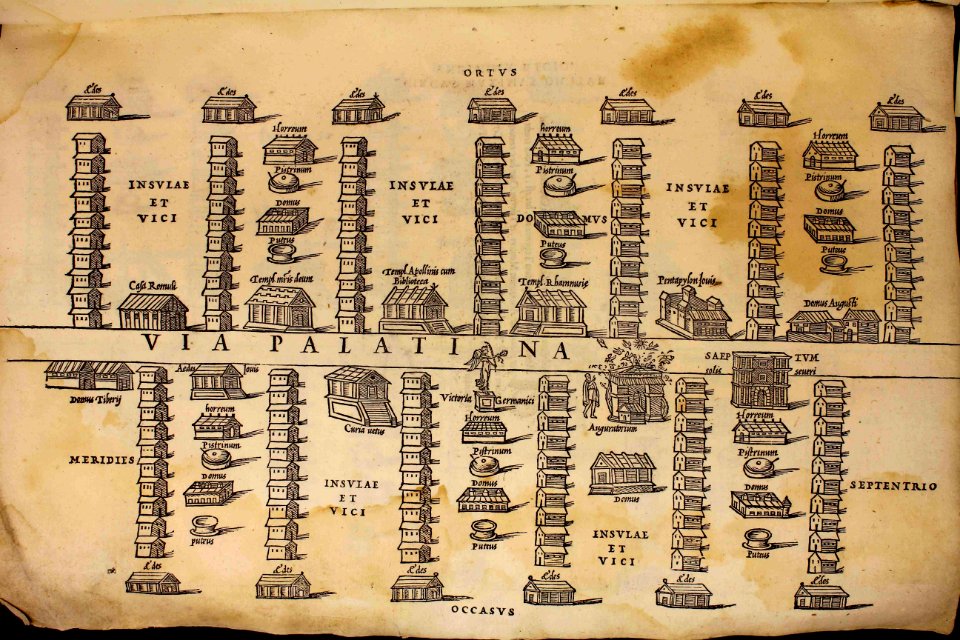 ORTVS
Ædes
Ædes
Ædes
Ædes
Ædes
Ædes
Ædes
Horreum
horreum
Horreum
Pistrinum
Pistrinum
Pistrinum
INSVLAE
ET
VICI
INSVLAE
ET
VICI
INSVLAE
ET
VICI
Domus
DOMVS
Domus
Puteus
Puteus
Puteus
Casa Romuli
Templ. mris deum
Templ Apollinis cum
Bibliotheca
Templ. Rhamnusiæ
Pentapylon Iouis
Domus Augusti
VIA PALATINA
Domus Tiberij
Aedes Iouis
Curia uetus
Victoria Germanici
Auguratorium
SAEPTVM
solis seueri
horreum
Horreum
Horreum
Pistrinum
Pistrinum
Pistrinum
MERIDIES
SEPTENTRIO
Domus
Domus
Domus
Domus
INSVLAE
ET
VICI
INSVLAE
ET
VICI
puteus
Puteus
Puteus
Ædes
Ædes
Ædes
Ædes
Ædes
Ædes
OCCASVS